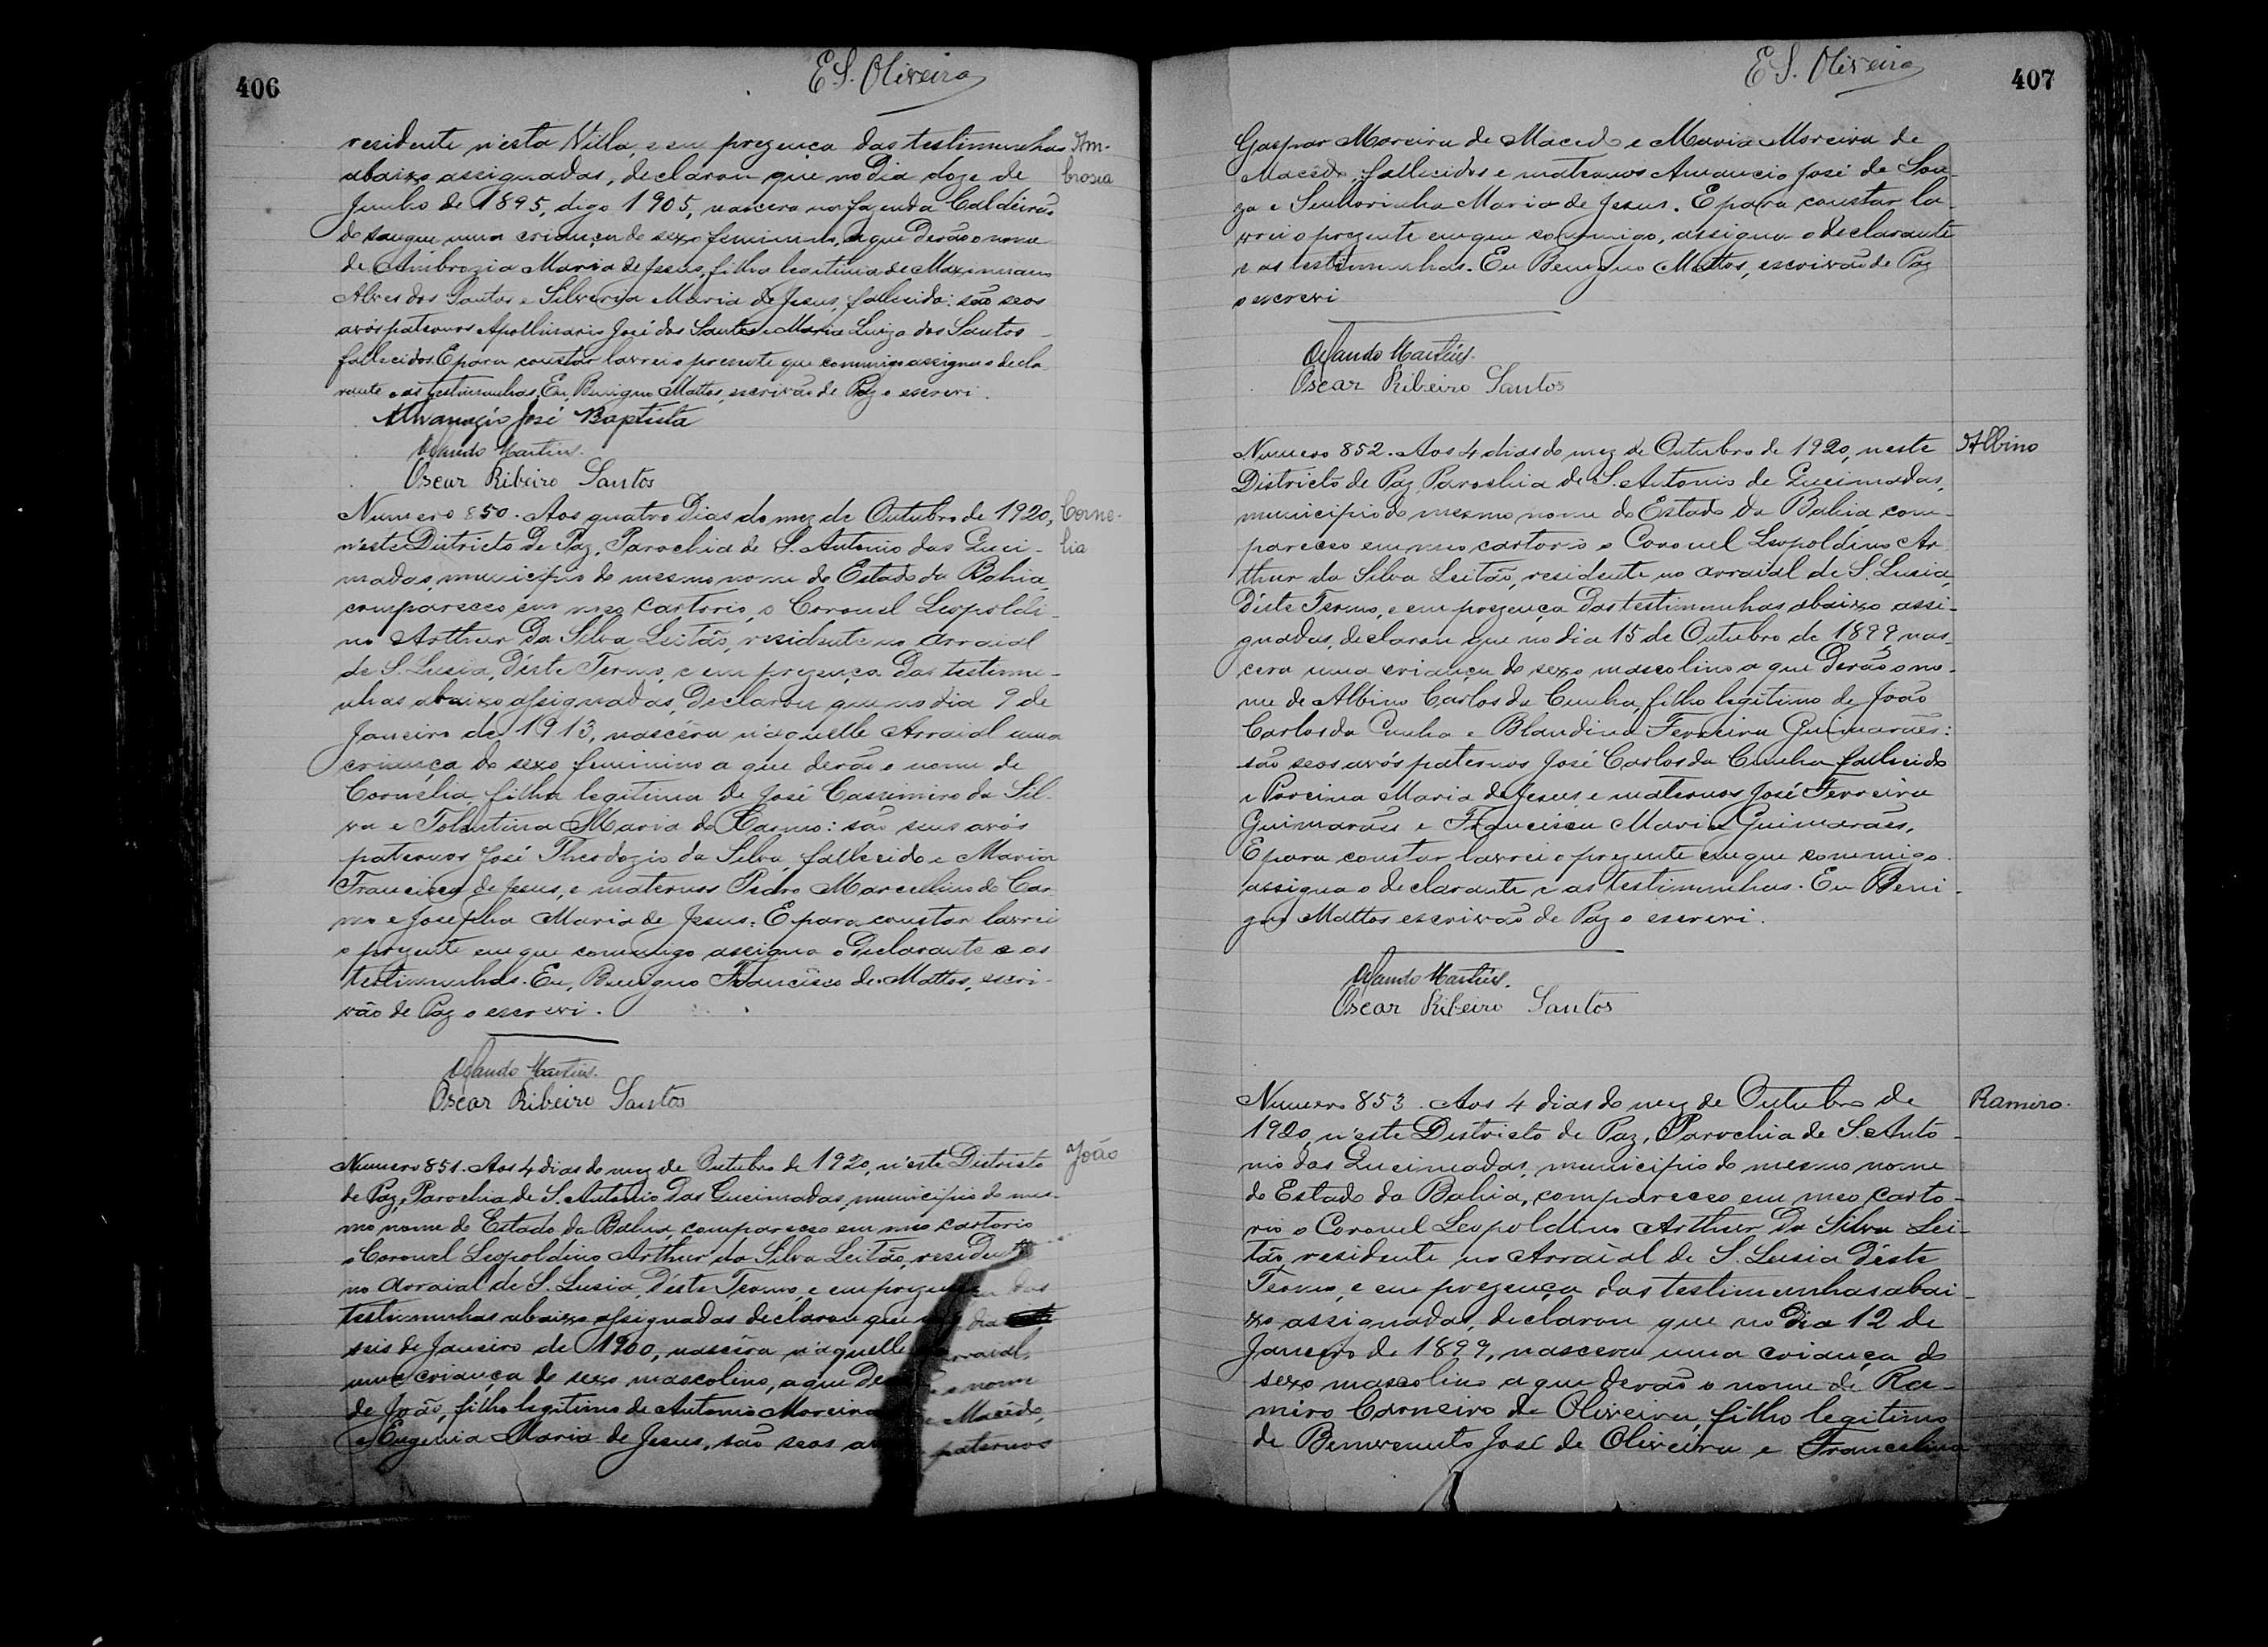 406
E S. Oliveira
residente n'esta Villa, e em prezença das testimunhas
Am-
abaixo assignadas, declarou que no dia doze de
brosia
Junho de 1895, digo 1905, nascera na fazenda Caldeirão
do sangue uma criança do sexo feminino, a que derão o nome
de Ambrozia Maria de Jesus, filha legitima de Maximiano
Alves dos Santos e Silveria Maria de Jesus, fallecida: são seos
avós paternos Apollinario José dos Santos e Maria Luiza dos Santos
fallecidos. E para constar lavrei o presente que commigo assigna o decla
rante e as testimunhas. Eu, Benigno Mattos, escrivão de Paz o escrevi.
José Baptista
Orlando Martins.
Oscar Ribeiro Santos
Numero 850. Aos quatro dias do mez de Outubro de 1920,
Corne-
n'este Districto de Paz, Parochia de S. Antonio das Quei-
lia
madas, municipio do mesmo nome do Estado da Bahia
compareceo em meo cartorio, o Coronel Leopoldi-
no Arthur da Silva Leitão, residente no arraial
de S. Lusia, d'este Termo, e em prezença das testimu-
nhas abaixo assignadas, declarou que no dia 9 de
Janeiro de 1913, nascêra n'aquelle Arraial uma
criança do sexo feminino a que derão o nome de
Cornelia, filha legitima de José Cassimiro da Sil-
va e Tolentina Maria do Carmo: são seus avós
paternos José Theodozio da Silva, fallecido e Maria
Francisca de Jesus, e maternos Pedro Marcellino do Car
mo e Josepha Maria de Jesus. E para constar lavrei
o prezente em que commigo assigna o declarante e as
testimunhas. Eu, Benigno Francisco de Mattos, escri-
vão de Paz o escrevi.
Orlando Martins.
Oscar Ribeiro Santos
Numero 851. Aos 4 dias do mez de Outubro de 1920, n'este Districto
João
de Paz, Parochia de S. Antonio das Queimadas, municipio do mes-
mo nome do Estado da Bahia, compareceo em meo cartorio
o Coronel Leopoldino Arthur da Silva Leitão, residente
no Arraial de S. Lusia, d'este Termo, e em prezença das
testimunhas abaixo assignadas declarou que no dia
seis de Janeiro de 1900, nascêra n'aquelle Arraial,
uma criança do sexo mascolino, a que derão o nome
de João, filho legitimo de Antonio Moreira de Macêdo,
e Eugenia Maria de Jesus, são seos avós paternos
E S. Oliveira
407
Gaspar Moreira de Macedo e Maria Moreira de
Macêdo, fallecidos e maternos Amancio José de Sou-
za e Senhorinha Maria de Jesus. E para constar la-
vrei o prezente em que commigo, assigna o declarante
e as testimunhas. Eu Benigno Mattos, escrivão de Paz
o escrevi
Orlando Martins.
Oscar Ribeiro Santos
Numero 852. Aos 4 dias do mez de Outubro de 1920, neste
Albino
Districto de Paz, Parochia de S. Antonio de Queimadas,
municipio do mesmo nome do Estado da Bahia com-
pareceo em meo cartorio o Coronel Leopoldino Ar
thur da Silva Leitão, residente no arraial de S. Lusia
d'este Termo, e em prezença das testimunhas abaixo assi-
gnadas, declarou que no dia 15 de Outubro de 1899 nas-
cera uma criança do sexo mascolino a que derão o no-
me de Albino Carlos da Cunha, filho legitimo de João
Carlos da Cunha e Blandina Ferreira Guimarães:
são seos avós paternos José Carlos da Cunha fallecido
e Porcina Maria de Jesus e maternos José Ferreira
Guimarães e Francisca Maria Guimarães.
E para constar lavrei o prezente em que commigo
assigna o declarante e as testimunhas. Eu Beni-
gno Mattos escrivão de Paz o escrevi.
Orlando Martins.
Oscar Ribeiro Santos
Numero 853. Aos 4 dias do mez de Outubro de
Ramiro.
1920, n'este Districto de Paz, Parochia de S. Anto-
nio das Queimadas, municipio do mesmo nome
do Estado da Bahia, compareceo em meo carto-
rio o Coronel Leopoldino Arthur da Silva Lei-
tão, residente no Arraial de S. Lusia d'este
Termo, e em prezença das testimunhas abai-
xo assignadas, declarou que no dia 12 de
Janeiro de 1899, nascera uma criança do
sexo mascolino a que derão o nome de Ra-
miro Carneiro de Oliveira, filho legitimo
de Bemvenuto José de Oliveira e Francelina